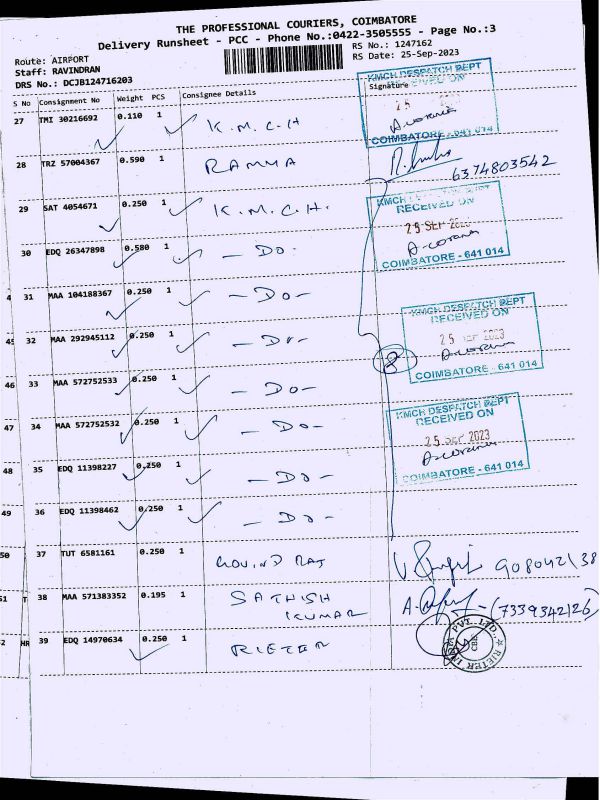 THE PROFESSIONAL COURIERS, COIMBATORE
Delivery Runsheet - PCC - Phone No.:0422-3505555 - Page No.:3
Route: AIRPORT
RS No.: 1247162
Staff: RAVINDRAN
RS Date: 25-Sep-2023
DRS No.: DCJB124716203
S No Consignment No Weight PCS Consignee Details Signature
KMCH DESPATCH DEPT
RECEIVED ON
25
COIMBATORE - 641 014
27 TMI 30216692 0.110 1 K.M.C.H
28 TRZ 57004367 0.590 1 RAMYA
6374803542
29 SAT 4054671 0.250 1 K.M.C.H.
KMCH DESPATCH DEPT
RECEIVED ON
25 SEP 2023
COIMBATORE - 641 014
30 EDQ 26347898 0.580 1 - DO -
4 31 MAA 104188367 0.250 1 - DO -
KMCH DESPATCH DEPT
RECEIVED ON
25 SEP 2023
COIMBATORE - 641 014
45 32 MAA 292945112 0.250 1 - DO -
8
46 33 MAA 572752533 0.250 1 - DO -
KMCH DESPATCH DEPT
RECEIVED ON
25 SEP 2023
COIMBATORE - 641 014
47 34 MAA 572752532 0.250 1 - DO -
48 35 EDQ 11398227 0.250 1 - DO -
49 36 EDQ 11398462 0.250 1 - DO -
50 37 TUT 6581161 0.250 1 GOVIND RAJ
908042138
51 T 38 MAA 571383352 0.195 1 SATHISH
KUMAR
(7339342126)
52 HR 39 EDQ 14970634 0.250 1 RIETER
RIETER INDIA PVT. LTD.
CBE